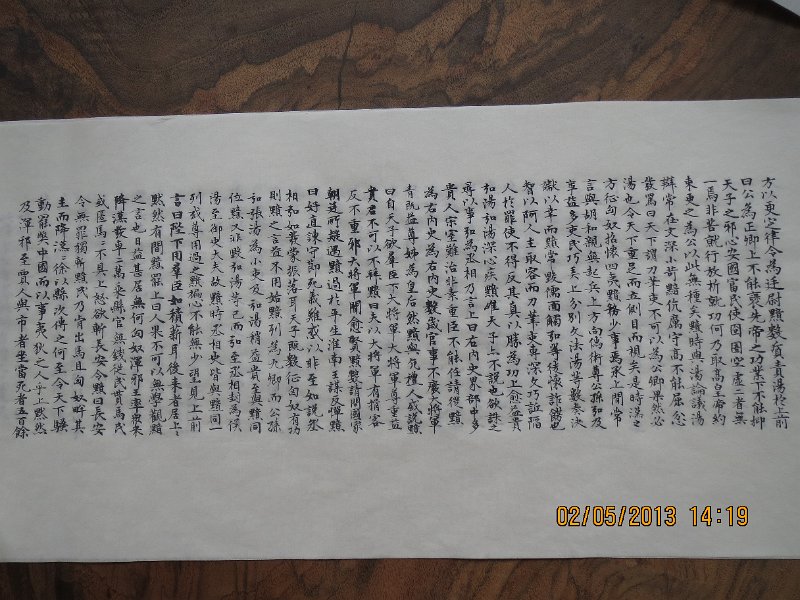 方以更定律令為廷尉黯數質責湯於上前
曰公為正卿上不能褒先帝之功業下不能抑
天下之邪心安國富民使囹圄空虛二者無
一焉非苦就行放析就功何乃取高皇帝約
束更之為公以此無種矣黯時與湯論議湯
辯常在文深小苛黯伉厲守高不能屈忿
發罵曰天下謂刀筆吏不可以為公卿果然必
湯也令天下重足而立側目而視矣是時漢
方征匈奴招懷四夷黯務少事乘上閒常
言與胡和親無起兵上方向儒術尊公孫弘及
事益多吏民巧弄上分別文法湯等數奏決
讞以幸而黯常毀儒面觸弘等徒懷詐飾
智以阿人主取容而刀筆吏專深文巧詆陷
人於罪使不得反其真以勝為功上愈益貴
弘湯弘湯深心疾黯唯天子亦不說也欲誅之
以事弘為丞相乃言上曰右內史界部中多
貴人宗室難治非素重臣不能任請徙黯
為右內史為右內史數歲官事不廢大將軍
青既益尊姊為皇后然黯與亢禮人或說黯
曰自天子欲羣臣下大將軍大將軍尊重益
貴君不可以不拜黯曰夫以大將軍有揖客
反不重邪大將軍聞愈賢黯數請問國家
朝廷所疑遇黯過於平生淮南王謀反憚黯
曰好直諫守節死義難惑以非至如說丞
相弘如發蒙振落耳天子既數征匈奴有功
黯之言益不用始黯列為九卿而公孫
弘張湯為小吏及弘湯稍益貴與黯同
位黯又非毀弘湯等已而弘至丞相封為侯
湯至御史大夫故黯時丞相史皆與黯同
列或尊用過之黯褊心不能無少望見上前
言曰陛下用羣臣如積薪耳後來者居上上
默然有閒黯罷上曰人果不可以無學觀黯
之言也日益甚居無何匈奴渾邪王率眾來
降漢發車二萬乘縣官無錢從民貰馬民
或匿馬馬不具上怒欲斬長安令黯曰長安
令無罪獨斬黯民乃肯出馬且匈奴畔其
主而降漢漢徐以縣次傳之何至令天下騷
動罷獘中國而以事夷狄之人乎上默然
及渾邪至賈人與市者坐當死者五百餘
02/05/2013 14:19